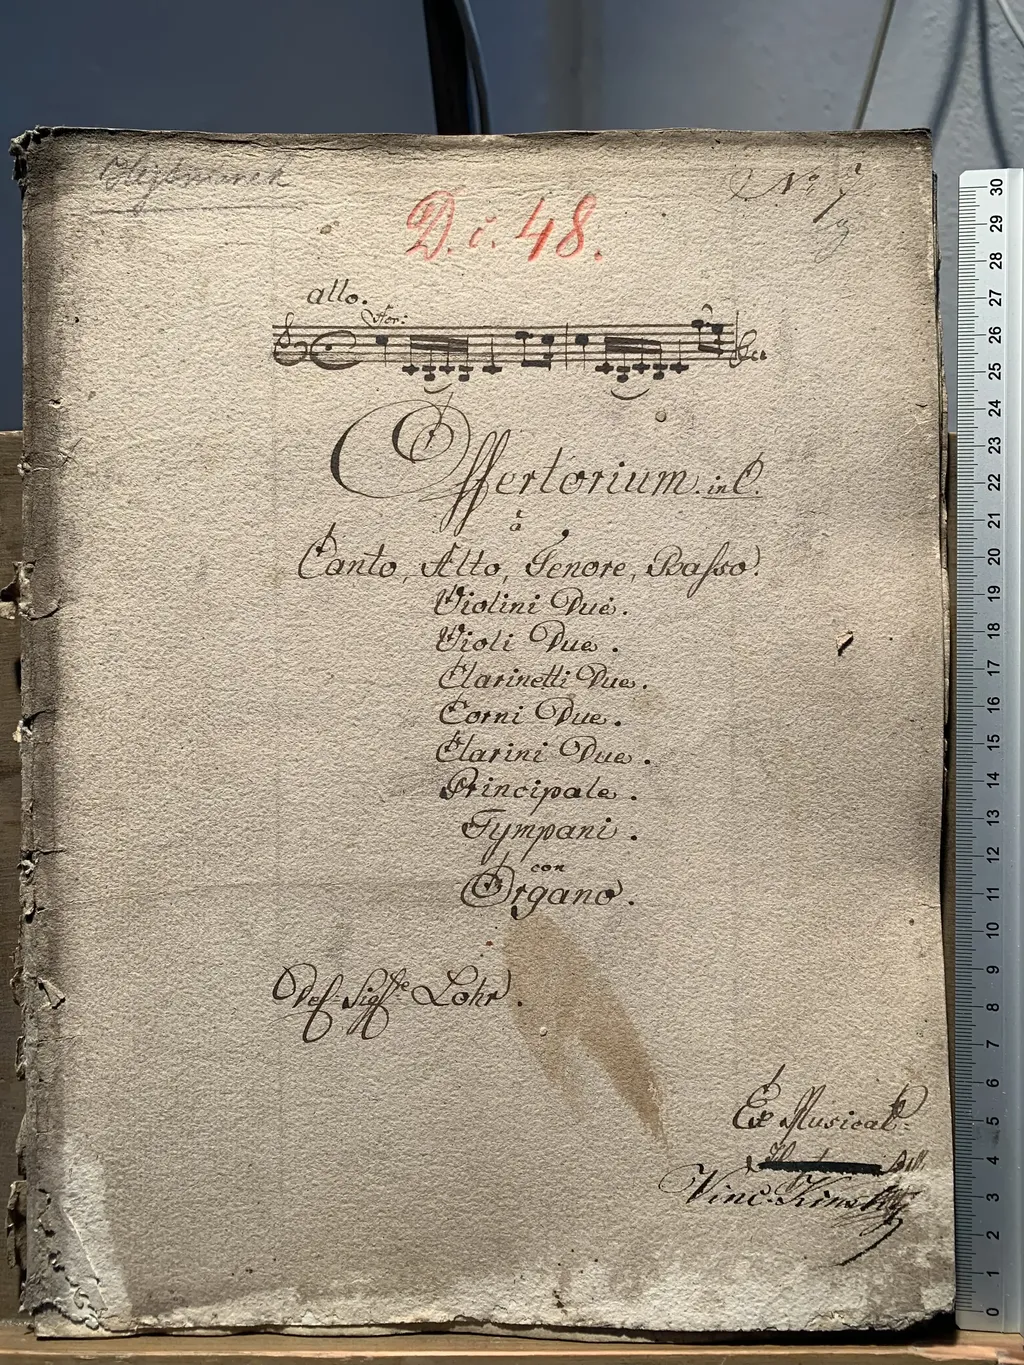 No
D. i. 48.
allo.
For:
Offertorium. in C.
à
Canto, Alto, Tenore, Basso.
Violini Due.
Violi Due.
Clarinetti Due.
Corni Due.
Clarini Due.
Principale.
Tympani.
con
Organo.
Lohr.
Ex Musical:
Vinc. Kinsky
30
29
28
27
26
25
24
23
22
21
20
19
18
17
16
15
14
13
12
11
10
9
8
7
6
5
4
3
2
1
0